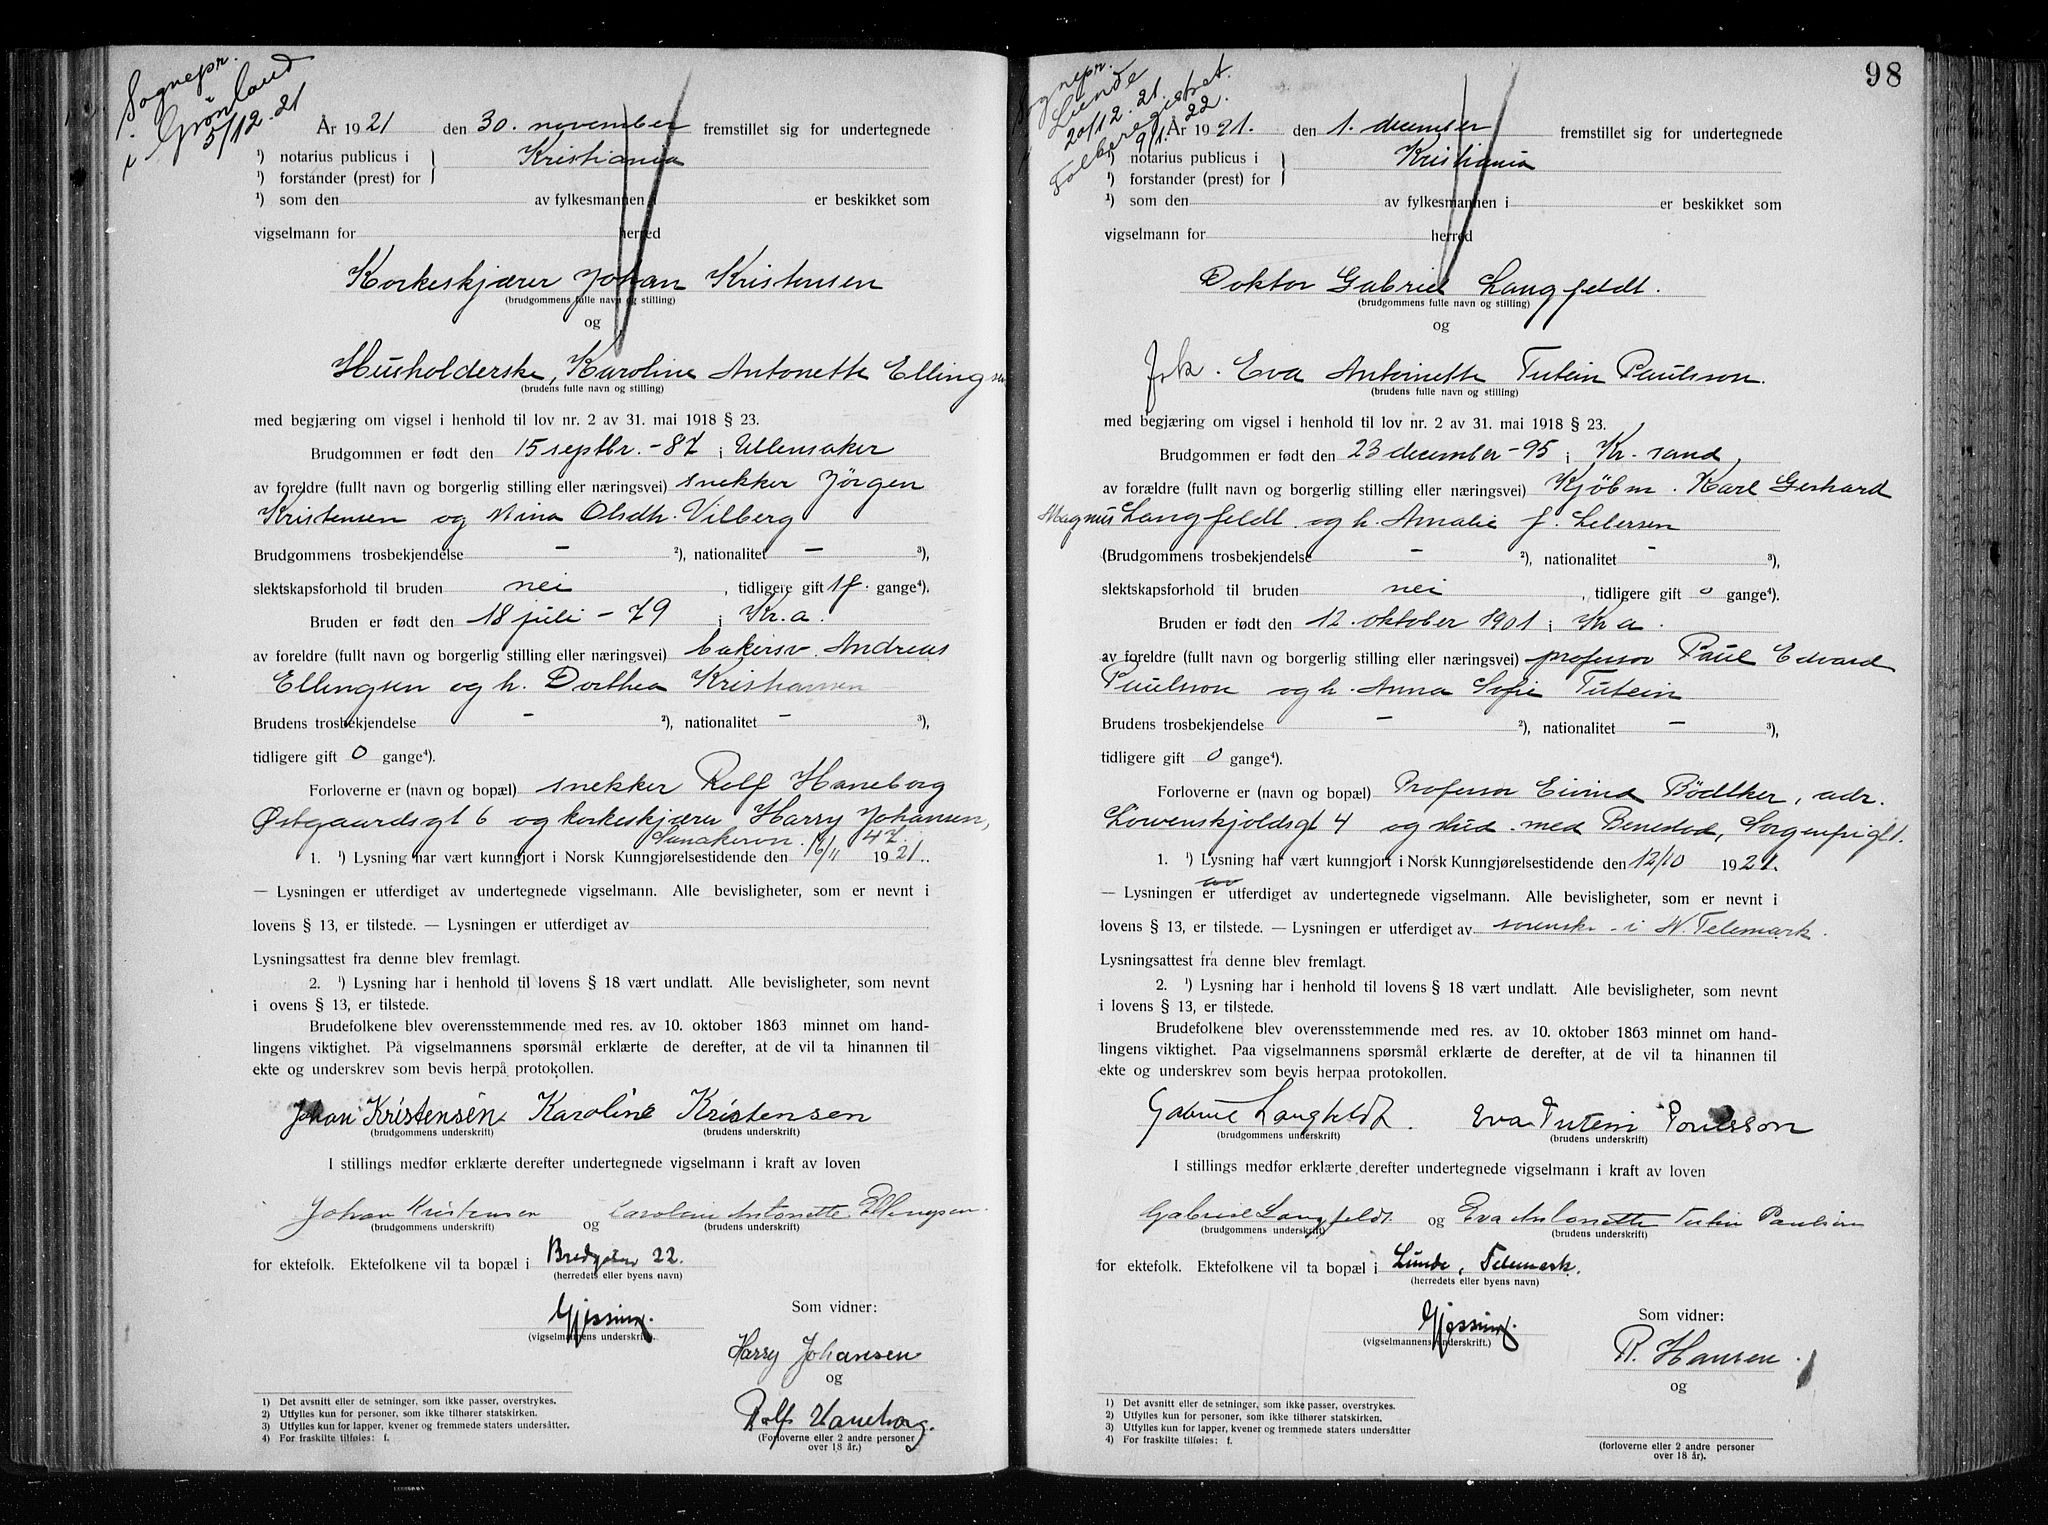 Sognepr.
i Grönland
5/12.21
År 1921 den 30. november fremstillet sig for undertegnede
¹) notarius publicus i Kristiania
¹) forstander (prest) for
¹) som den av fylkesmannen i er beskikket som
vigselmann for herred
Korkeskjærer Johan Kristensen
(brudgommens fulle navn og stilling)
og
Husholderske, Karoline Antonette Ellingsen
(brudens fulle navn og stilling)
med begjæring om vigsel i henhold til lov nr. 2 av 31. mai 1918 § 23.
Brudgommen er født den 15 septbr. - 87 i Ullensaker
av foreldre (fullt navn og borgerlig stilling eller næringsvei) snekker Jörgen
Kristensen og Mina Olsdtr. Vilberg
Brudgommens trosbekjendelse - ²), nationalitet - ³),
slektskapsforhold til bruden nei, tidligere gift 1 f. gange⁴).
Bruden er født den 18 juli - 79 i Kr.a.
av foreldre (fullt navn og borgerlig stilling eller næringsvei) bakersv. Andreas
Ellingsen og h. Dorthea Kristiansen
Brudens trosbekjendelse - ²), nationalitet - ³),
tidligere gift 0 gange⁴).
Forloverne er (navn og bopæl) snekker Rolf Haneborg
Østgaardsgt 6 og korkeskjærer Harry Johansen,
Sannkervn. 47.
1. ¹) Lysning har vært kunngjort i Norsk Kunngjørelsestidende den 16/11 1921.
— Lysningen er utferdiget av undertegnede vigselmann. Alle bevisligheter, som er nevnt i
lovens § 13, er tilstede. — Lysningen er utferdiget av
Lysningsattest fra denne blev fremlagt.
2. ¹) Lysning har i henhold til lovens § 18 vært undlatt. Alle bevisligheter, som nevnt
i ovens § 13, er tilstede.
Brudefolkene blev overensstemmende med res. av 10. oktober 1863 minnet om hand-
lingens viktighet. På vigselmannens spørsmål erklærte de derefter, at de vil ta hinannen til
ekte og underskrev som bevis herpå protokollen.
Johan Kristensen Karoline Kristensen
(brudgommens underskrift) (brudens underskrift)
I stillings medfør erklærte derefter undertegnede vigselmann i kraft av loven
Johan Kristensen og Caroline Antonette Ellingsen
(brudgommens underskrift) (brudens underskrift)
for ektefolk. Ektefolkene vil ta bopæl i Bredgaten 22.
(herredets eller byens navn)
Gjessing.
(vigselmannens underskrift.
Som vidner:
Harry Johansen
og
Rolf Haneborg.
(Forloverne eller 2 andre personer
over 18 år.)
1) Det avsnitt eller de setninger, som ikke passer, overstrykes.
2) Utfylles kun for personer, som ikke tilhører statskirken.
3) Utfylles kun for lapper, kvener og fremmede staters undersåtter.
4) For fraskilte tilføies: f.
98
Sognepr.
Lunde
20/12.21.
Folkeregistret
9/1. 22.
År 1921. den 1. december fremstillet sig for undertegnede
¹) notarius publicus i Kristiania
¹) forstander (prest) for
¹) som den av fylkesmannen i er beskikket som
vigselmann for herred
Doktor Gabriel Langfeldt.
(brudgommens fulle navn og stilling)
og
frk. Eva Antoinette Tutein Paulsson.
(brudens fulle navn og stilling)
med begjæring om vigsel i henhold til lov nr. 2 av 31. mai 1918 § 23.
Brudgommen er født den 23 december - 95 i Kr. sand,
av forældre (fullt navn og borgerlig stilling eller næringsvei) Kjöbm. Karl Gerhard
Magnus Langfeldt og h. Amalie f. Petersen
(Brudgommens trosbekjendelse - ²), nationalitet - ³),
slektskapsforhold til bruden nei, tidligere gift 0 gange⁴).
Bruden er født den 12. oktober 1901 i Kr.a.
av foreldre (fullt navn og borgerlig stilling eller næringsvei) professor Paul Edvard
Paulsson og h. Anna Sofie Tutein
Brudens trosbekjendelse - ²), nationalitet - ³),
tidligere gift 0 gange⁴).
Forloverne er (navn og bopæl) Professor Eivind Bödtker, adr.
Löwenskjoldsgt 4 og stud. med Benestad, Sorgenfrigt.
1. ¹) Lysning har vært kunngjort i Norsk Kunngjørelsestidende den 12/10 1921.
— Lysningen er utferdiget av undertegnede vigselmann. Alle bevisligheter, som er nevnt i
lovens § 13, er tilstede. — Lysningen er utferdiget av sorenskr. i N. Telemark.
Lysningsattest fra denne blev fremlagt.
2. ¹) Lysning har i henhold til lovens § 18 vært undlatt. Alle bevisligheter, som nevnt
i lovens § 13, er tilstede.
Brudefolkene blev overensstemmende med res. av 10. oktober 1863 minnet om hand-
lingens viktighet. Paa vigselmannens spørsmål erklærte de derefter, at de vil ta hinannen til
ekte og underskrev som bevis herpaa protokollen.
Gabriel Langfeldt. Eva Tutein Poulsson
(brudgommens underskrift) (brudens underskrift)
I stillings medfør erklærte derefter undertegnede vigselmann i kraft av loven
Gabriel Langfeldt og Eva Antonette Tutin Paulsson
(brudgommens underskrift) (brudens underskrift)
for ektefolk. Ektefolkene vil ta bopæl i Lunde, Telemark.
(herredets eller byens navn)
Gjessing.
(vigselmannens underskrift.)
Som vidner:
R. Hansen.
og
(forloverne eller 2 andre personer
over 18 år).
1) Det avsnitt eller de setninger, som ikke passer, overstrykes.
2) Utfylles kun for personer, som ikke tilhører statskirken.
3) Utfylles kun for lapper, kvener og fremmede staters undersåtter
4) For fraskilte tilføies: f.